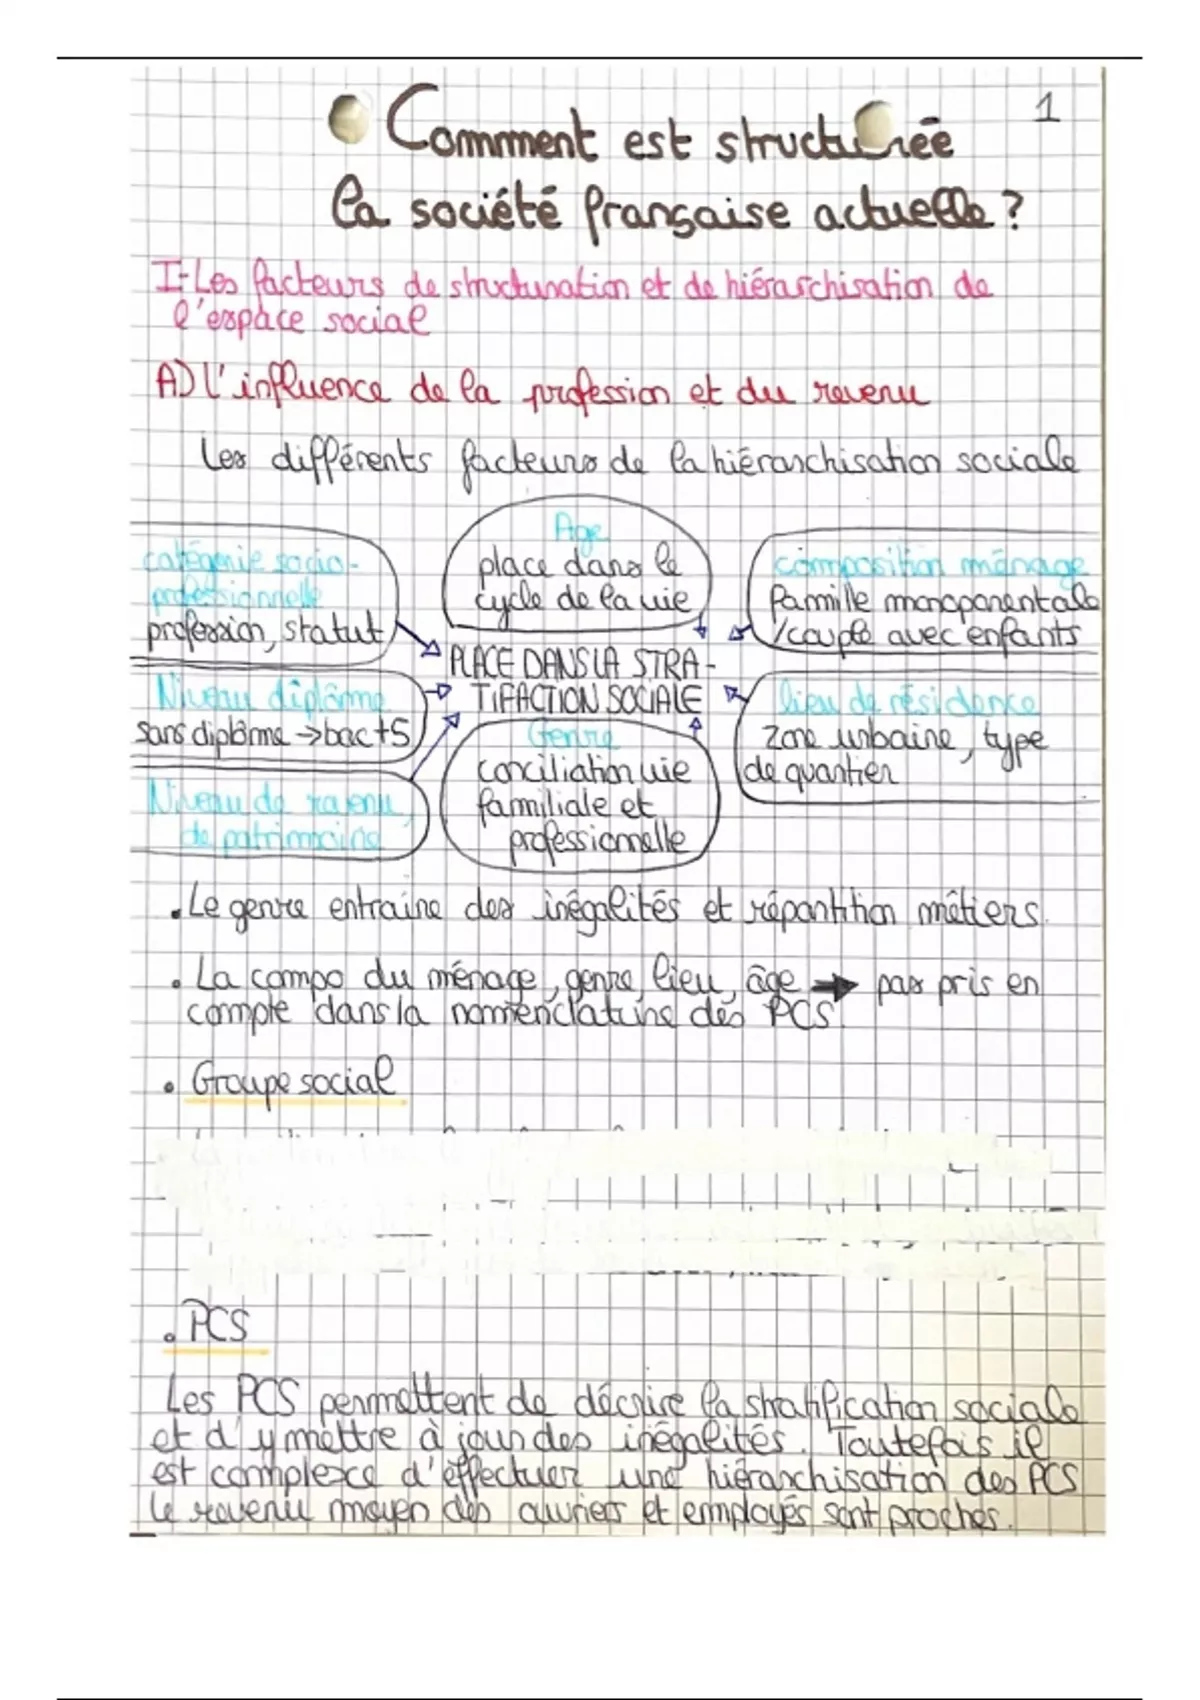 1
Commment est structurée
la société française actuelle ?
I-Les facteurs de structuration et de hiérarchisation de
l'espace social
A) L'influence de la profession et du revenu
Les différents facteurs de la hiérarchisation sociale
catégorie socio-
professionnelle
profession, statut
Age
place dans le
cycle de la vie
composition ménage
famille monoparentale
/couple avec enfants
PLACE DANS LA STRA-
TIFACTION SOCIALE
Niveau diplôme
sans diplôme → bac +5
Niveau de revenu,
de patrimoine
Genre
conciliation vie
familiale et
professionnelle
lieu de résidence
Zone urbaine, type
de quartier
• Le genre entraine des inégalités et répartition métiers.
• La compo du ménage, genre, lieu, âge → pas pris en
compte dans la nomenclature des PCS.
• Groupe social
• PCS
Les PCS permettent de décrire la stratification sociale
et d'y mettre à jour des inégalités. Toutefois il
est complexe d'effectuer une hiérarchisation des PCS
le revenu moyen des ouvriers et employés sont proches.